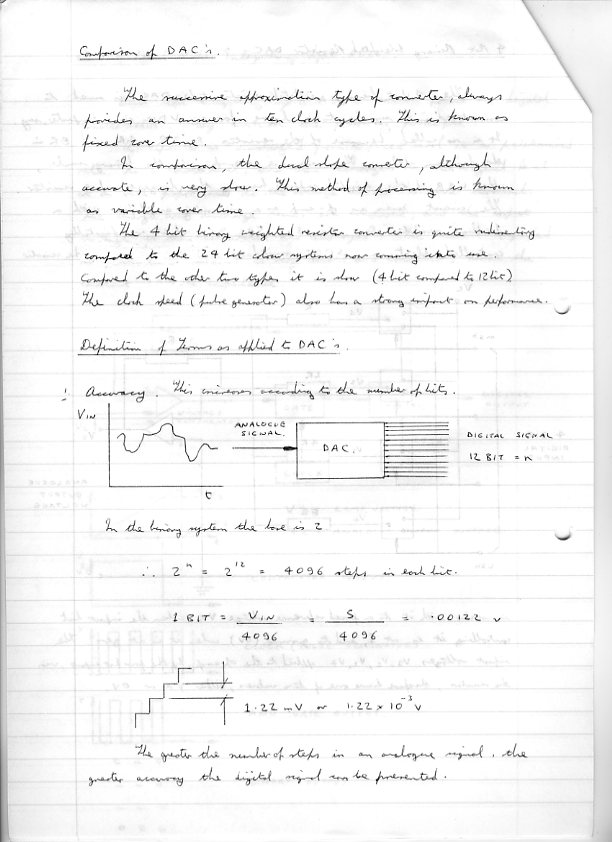 Comparison of DAC's.
The successive approximation type of converter, always
provides an answer in ten clock cycles. This is known as
fixed conv time.
In comparison, the dual slope converter, although
accurate, is very slow. This method of processing is known
as variable conver time.
The 4 bit binary weighted resistor converter is quite
compared to the 24 bit slow systems now comming into use.
Compared to the other two types it is slow (4 bit compared to 12 bit)
The clock speed (pulse generator) also has a strong impact on performance.
Definition of Terms as applied to DAC's.
Accuracy. This increases according to the number of bits.
VIN
ANALOGUE
SIGNAL.
DAC.
DIGITAL SIGNAL
12 BIT = n
t
In the binary system the base is 2
∴ 2ⁿ = 2¹² = 4096 steps in each bit.
1 BIT = VIN / 4096 = 5 / 4096 = .00122 v
1.22 mV or 1.22 x 10⁻³ v
The greater the number of steps in an analogue signal, the
greater accuracy the digital signal can be presented.